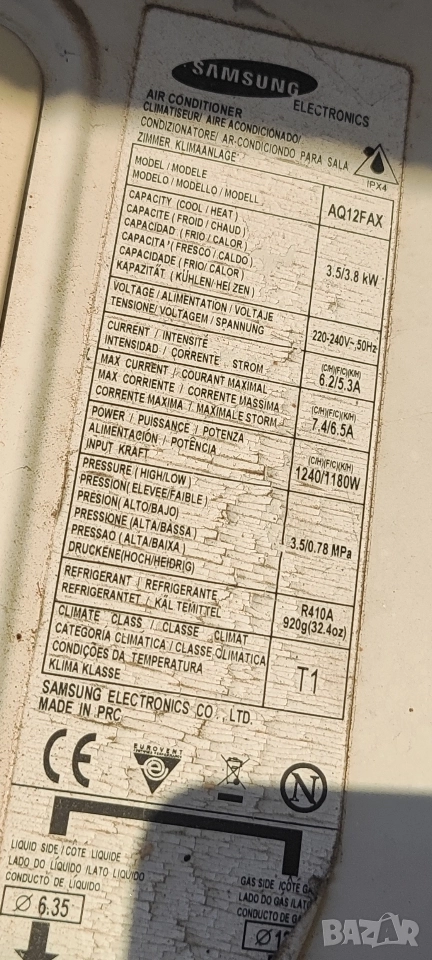 SAMSUNG
ELECTRONICS
AIR CONDITIONER
CLIMATISEUR/ AIRE ACONDICIONADO/
CONDIZIONATORE/ AR-CONDICIONDO PARA SALA
ZIMMER KLIMAANLAGE
IPX4
MODEL / MODELE
MODELO / MODELLO / MODELL
AQ12FAX
CAPACITY (COOL / HEAT)
CAPACITE (FROID / CHAUD)
CAPACIDAD (FRIO / CALOR)
CAPACITA' (FRESCO / CALDO)
CAPACIDADE (FRIO/ CALOR)
KAPAZITÄT (KÜHLEN/ HEIZEN)
3.5/3.8 kW
VOLTAGE / ALIMENTATION / VOLTAJE
TENSIONE/ VOLTAGEM / SPANNUNG
220-240V~,50Hz
CURRENT / INTENSITÉ
INTENSIDAD / CORRENTE STROM
(C/H)(F/C)(K/H)
6.2/5.3A
MAX CURRENT / COURANT MAXIMAL
MAX CORRIENTE / CORRENTE MASSIMA
CORRENTE MAXIMA / MAXIMALE STORM
(C/H)(F/C)(K/H)
7.4/6.5A
POWER / PUISSANCE / POTENZA
ALIMENTACIÓN / POTÊNCIA
INPUT KRAFT
(C/H)(F/C)(K/H)
1240/1180W
PRESSURE (HIGH/LOW)
PRESSION( ELEVEE/FAIBLE )
PRESION (ALTO/BAJO)
PRESSIONE (ALTA/BASSA)
PRESSAO (ALTA/BAIXA)
DRUCKENE(HOCH/HEIDRIG)
3.5/0.78 MPa
REFRIGERANT / REFRIGERANTE
REFRIGERANTET , KÄL TEMITTEL
R410A
920g(32.4oz)
CLIMATE CLASS / CLASSE CLIMAT
CATEGORIA CLIMATICA / CLASSE CLIMÁTICA
CONDIÇÕES DA TEMPERATURA
KLIMA KLASSE
T1
SAMSUNG ELECTRONICS CO ., LTD.
MADE IN PRC
CE
EUROVENT
N
LIQUID SIDE / COTE LIQUIDE
LADO DO LÍQUIDO /LATO LIQUIDO
CONDUCTO DE LÍQUIDO
Ø 6.35
GAS SIDE /CÔTE
LADO DO GAS
CONDUCTO DE
Ø
BAZAR